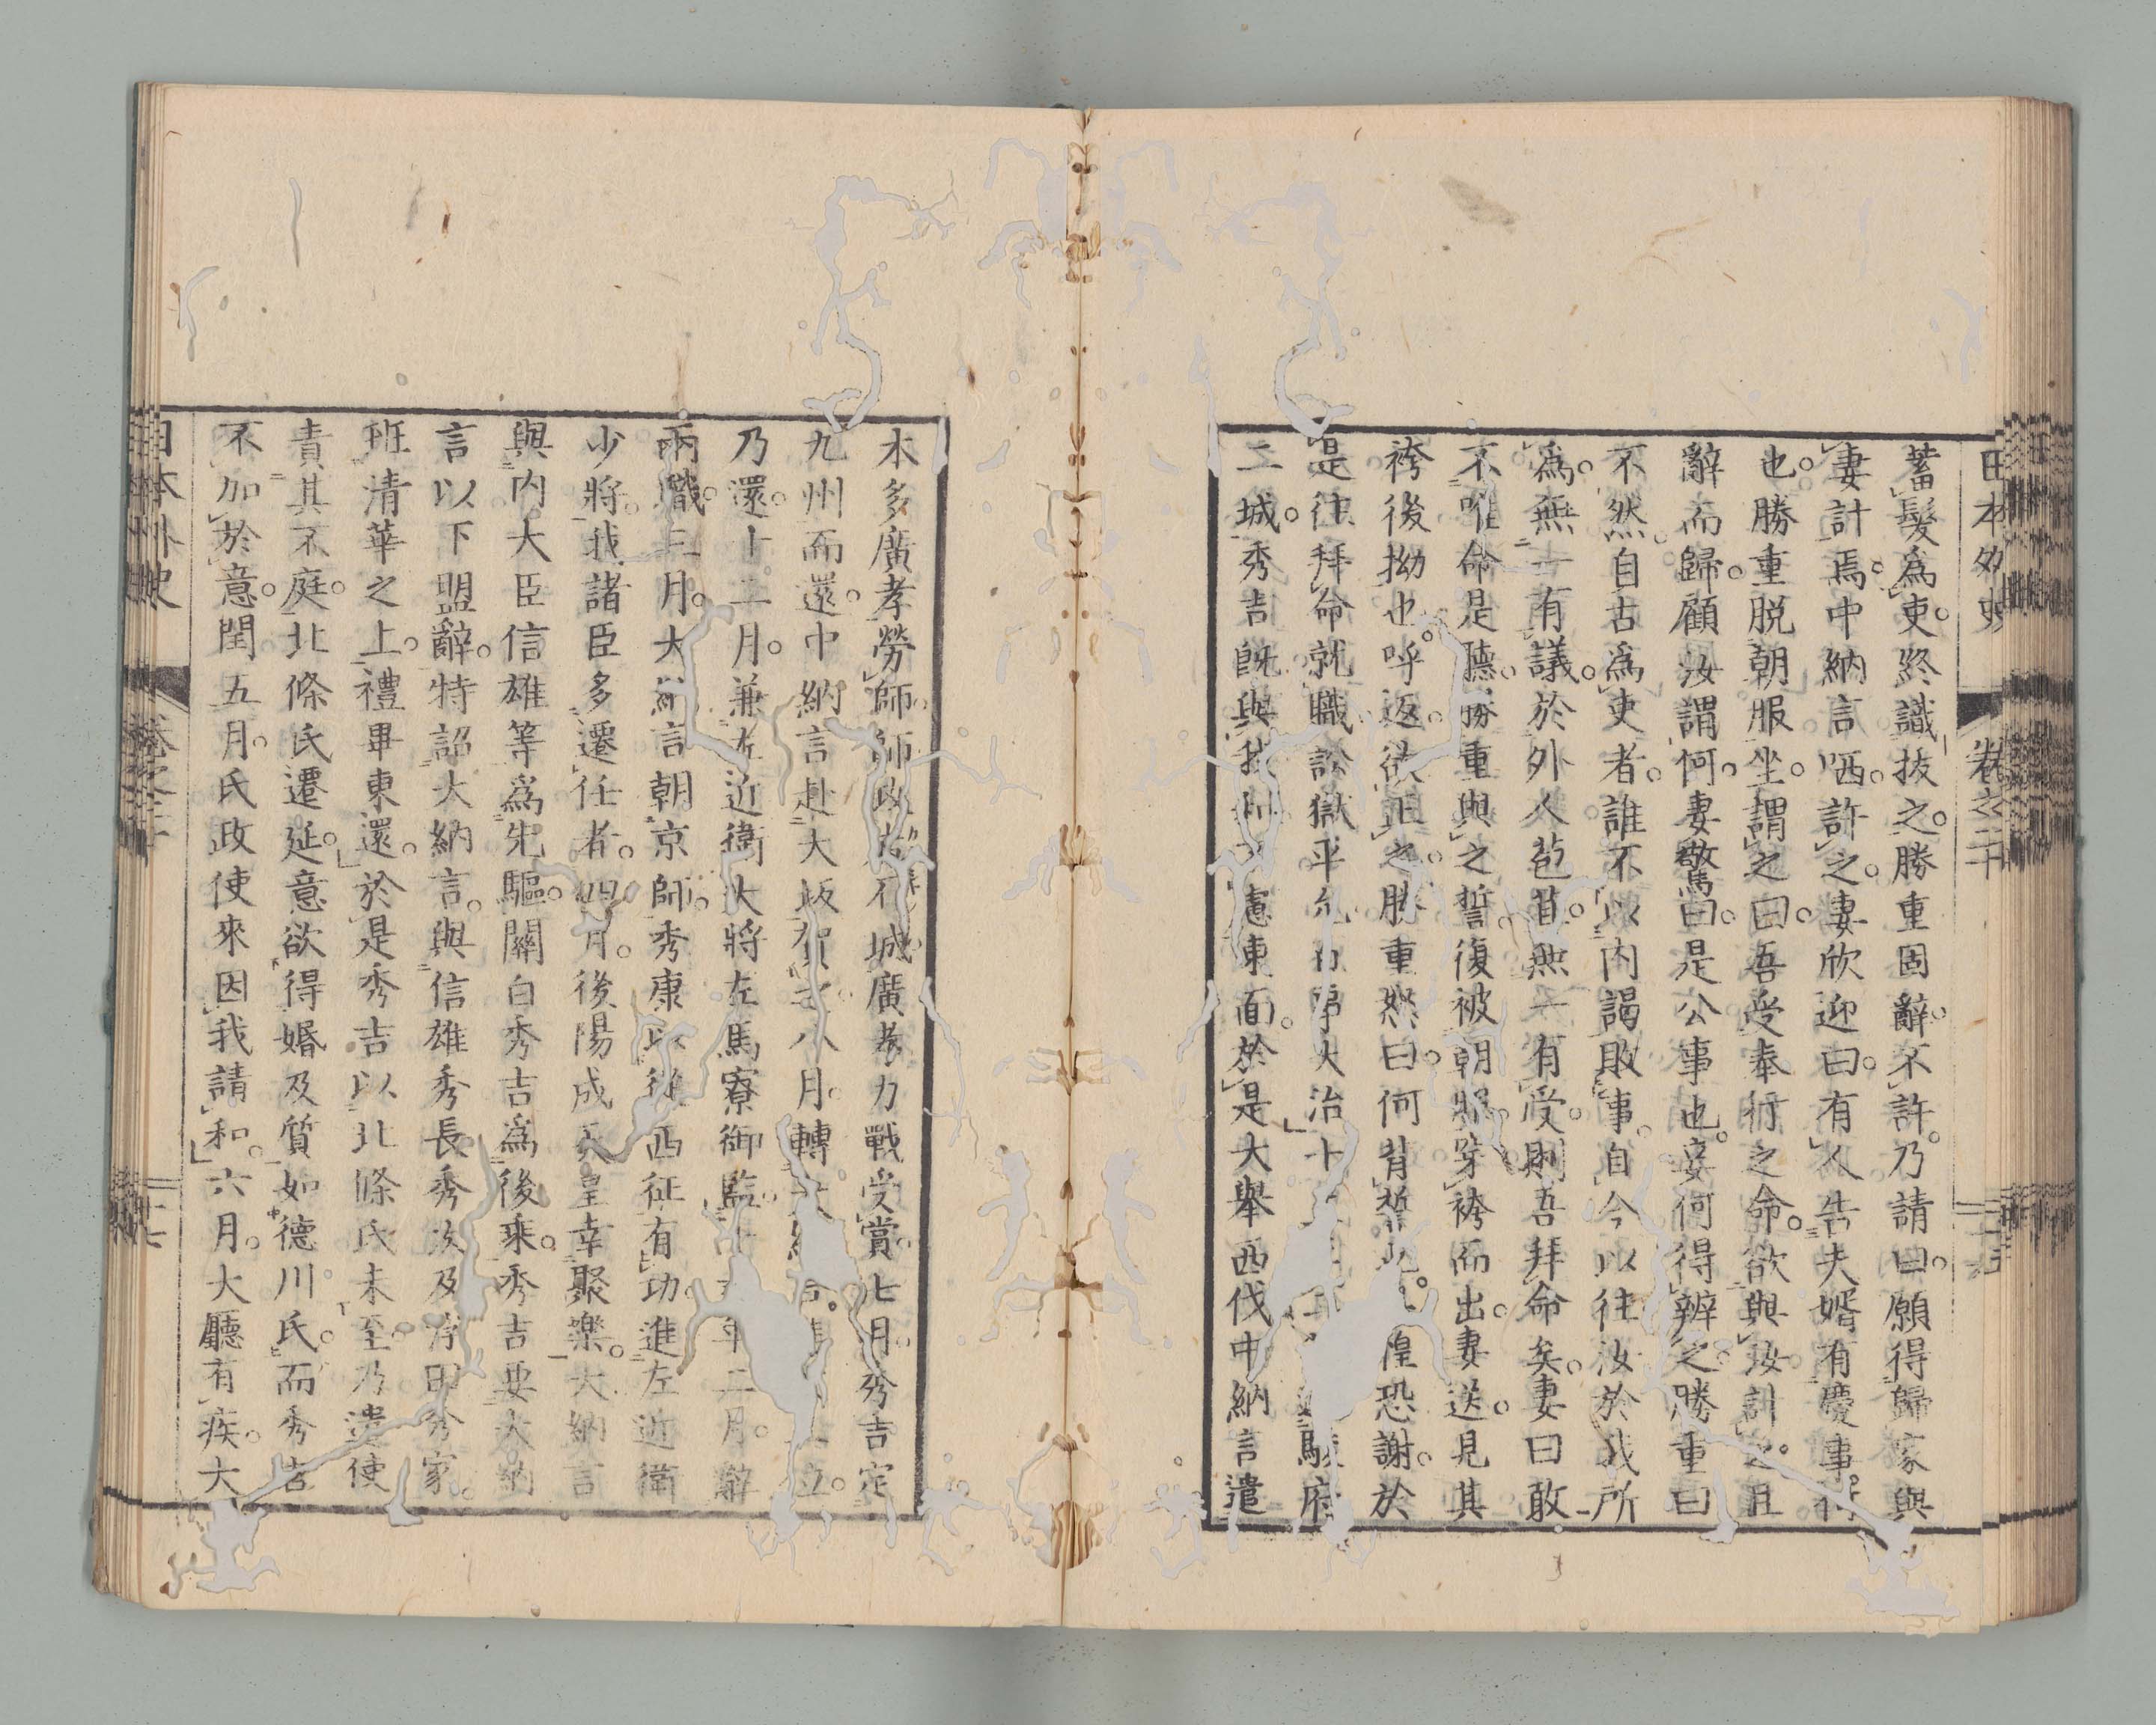 日本外史 卷之二十
蓄髮爲吏。終識拔之。勝重固辭。不許。乃請曰。願得歸家與
妻計焉。中納言哂。許之。妻欣迎曰。有人告夫婿有慶事。得
也。勝重脱朝服坐。謂之曰。吾受奉行之命。欲與汝計之。且
辭而歸。顧汝謂何。妻驚曰。是公事也。妾何得辨之。勝重曰
不然。自古爲吏者。誰不以内謁敗事。自今以往汝於我所
爲。無一有議。於外人苞苴。無一有受。則吾拜命矣。妻曰敢
不唯命是聽。勝重與之誓。復被朝服。穿袴而出。妻送。見其
袴後拗也。呼返。欲正之。勝重怒曰。何背誓 惶恐謝。於
是往拜命就職。訟獄平 大治。十 駿府
二城。秀吉既與我 憲東面。於是大舉西伐。中納言遣
本多廣孝勞師。師 城。廣孝力戰受賞。七月。秀吉定
九州而還。中納言赴大坂賀之。八月。轉大納言。 立。
乃還。十二月。兼左近衞大將左馬寮御監。 年二月。辭
兩職。三月。大納言朝京師。秀康以從西征有功。進左近衞
少將。我諸臣多遷任者。四月。後陽成天皇幸聚樂。大納言
與内大臣信雄等爲先驅。關白秀吉爲後乘。秀吉要大納
言以下盟辭。特詔大納言。與信雄秀長秀次及浮田秀家。
班清華之上。禮畢東還。於是秀吉以北條氏未至。乃遣使
責其不庭。北條氏遷延。意欲得婚及質如德川氏。而秀吉
不加於意。閏五月。氏政使來因我請和。六月。大廳有疾。大
日本外史 卷之二十 二十七